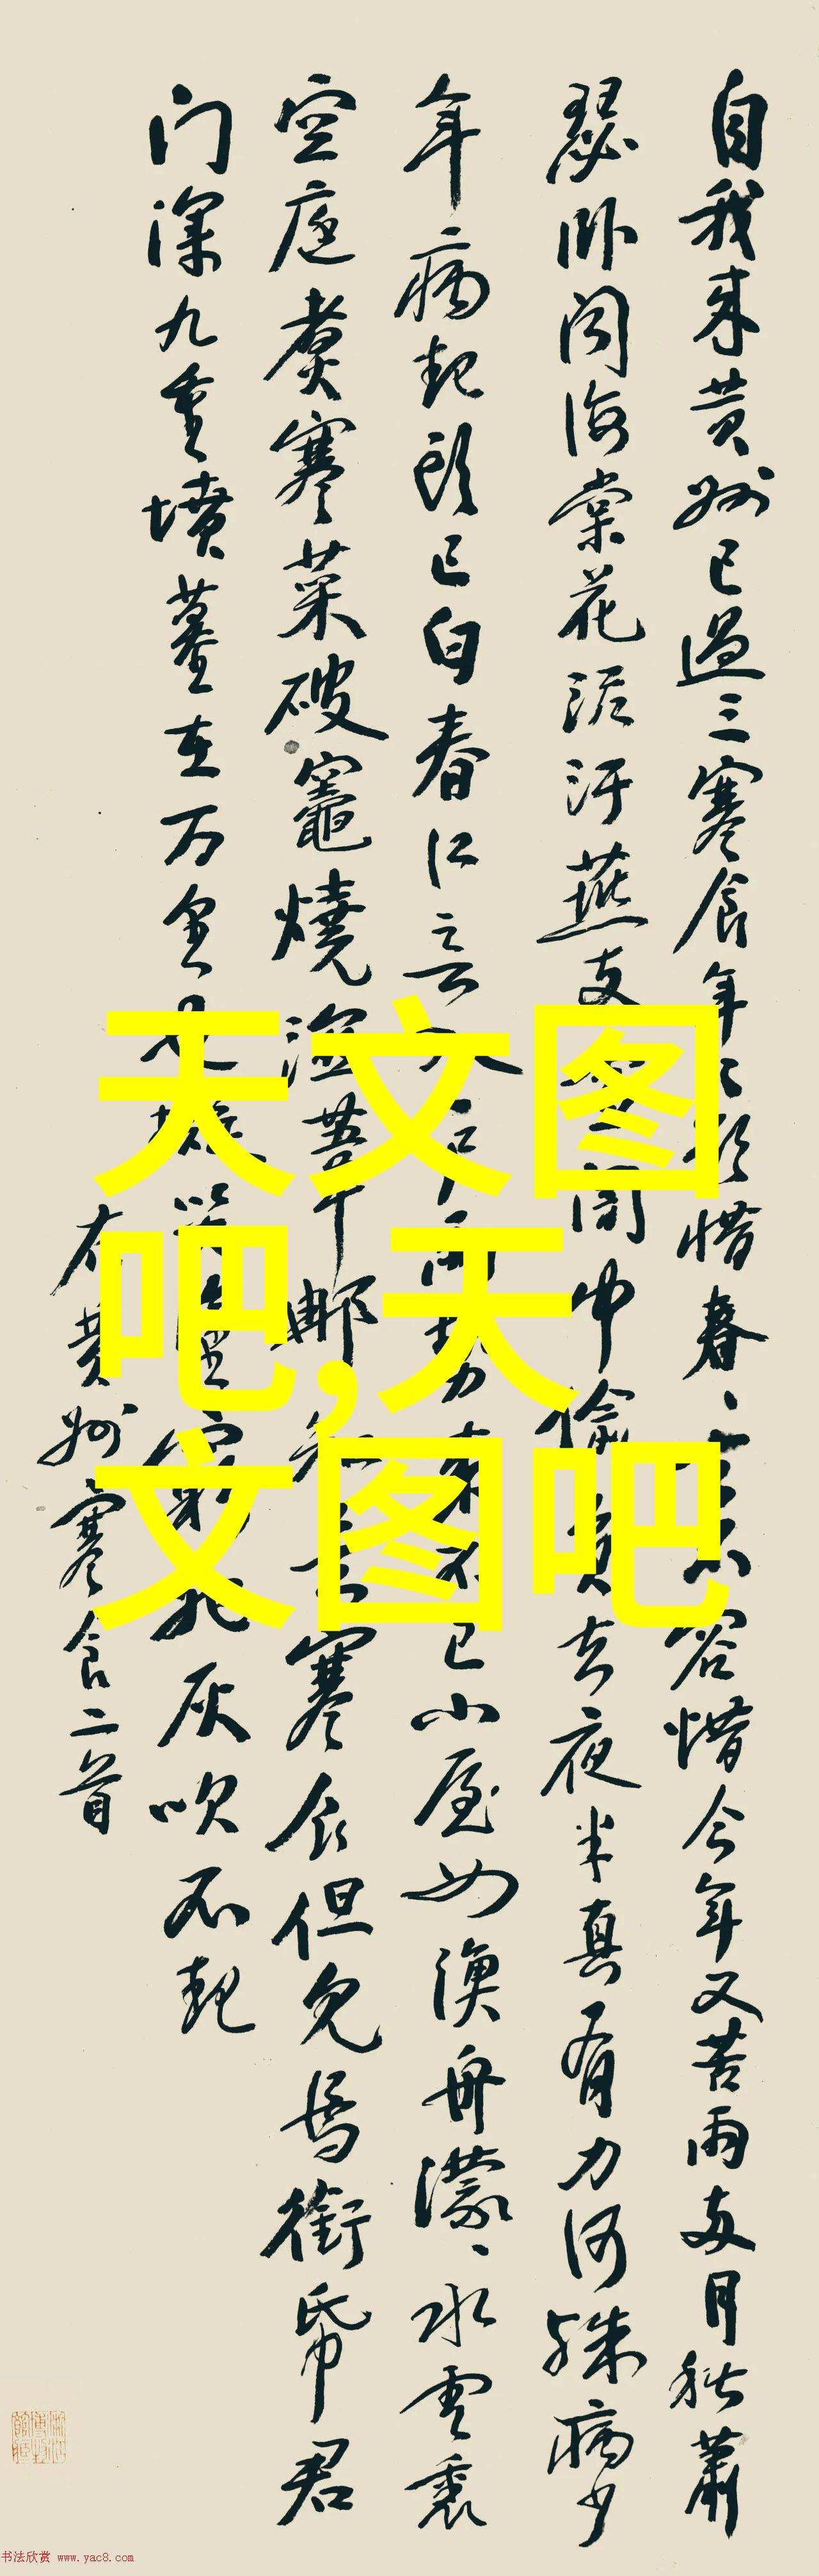 自我来黄州已過三寒食年々欲惜春、去不容惜今年又苦雨兩月秋蕭
瑟卧闻海棠花泥汙燕支雪闇中偷負去夜半真有力何殊病少
年病起頭已白春江入户雨势来不已小屋如漁舟濛、水雲裏
空庖煮寒菜破竈燒溼葦那知是寒食但見烏銜帋君
门深九重墳墓在万里也擬哭塗窮死灰吹不起
右黄州寒食二首
天文图
吧,天
文图吧
书法欣赏 www.yac8.com